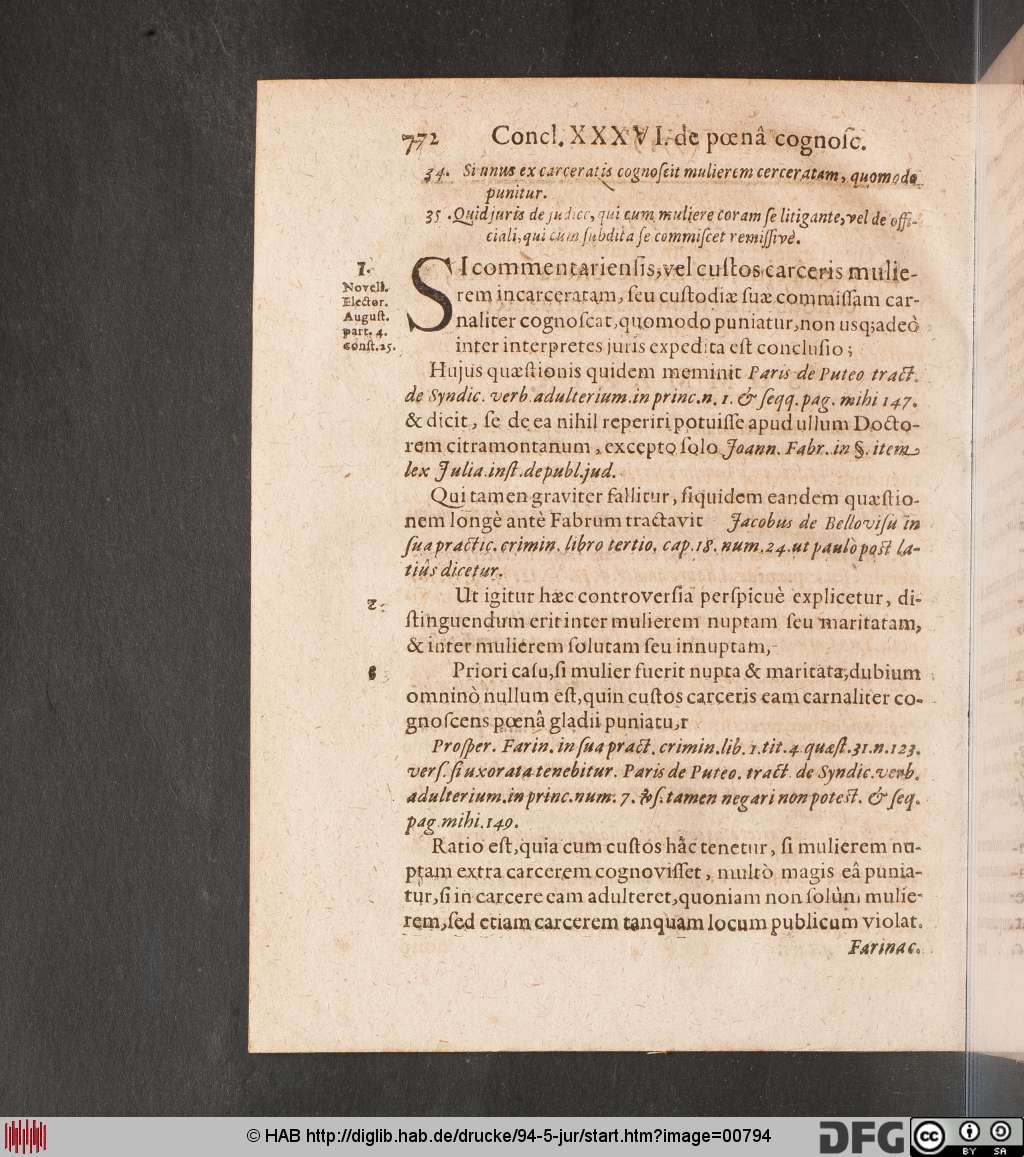 772 Concl. XXXVI. de pœnâ cognosc.
34. Si unus ex carceratis cognoscit mulierem cerceratam, quomodo
punitur.
35. Quid juris de judice, qui cum muliere coram se litigante, vel de offi-
ciali, qui cum subdita se commiscet remissivè.
1.
Novell.
Elector.
August.
part. 4.
const. 25.
SI commentariensis, vel custos carceris mulie-
rem incarceratam, seu custodiæ suæ commissam car-
naliter cognoscat, quomodo puniatur, non usq; adeò
inter interpretes juris expedita est conclusio;
Hujus quæstionis quidem meminit Paris de Puteo tract.
de Syndic. verb adulterium. in princ. n. 1. & seqq. pag. mihi 147.
& dicit, se de ea nihil reperiri potuisse apud ullum Docto-
rem citramontanum, excepto solo Joann. Fabr. in §. item
lex Julia. inst. de publ. jud.
Qui tamen graviter fallitur, siquidem eandem quæstio-
nem longè antè Fabrum tractavit Jacobus de Bellovisu in
sua practic. crimin. libro tertio, cap. 18. num. 24. ut paulò post la-
tiûs dicetur.
2.
Ut igitur hæc controversia perspicuè explicetur, di-
stinguendum erit inter mulierem nuptam seu maritatam,
& inter mulierem solutam seu innuptam,
Priori casu, si mulier fuerit nupta & maritata, dubium
omninò nullum est, quin custos carceris eam carnaliter co-
gnoscens pœnâ gladii puniatu,r
Prosper. Farin. in sua pract. crimin. lib. 1. tit. 4 quæst. 31. n. 123.
vers. si uxorata tenebitur. Paris de Puteo. tract de Syndic. verb.
adulterium. in princ. num. 7. tamen negari non potest. & seq.
pag. mihi. 149.
Ratio est, quia cum custos hâc tenetur, si mulierem nu-
ptam extra carcerem cognovisset, multò magis eâ punia-
tur, si in carcere eam adulteret, quoniam non solùm mulie-
rem, sed etiam carcerem tanquam locum publicum violat.
Farinac.
© HAB http://diglib.hab.de/drucke/94-5-jur/start.htm?image=00794
DFG
cc BY SA